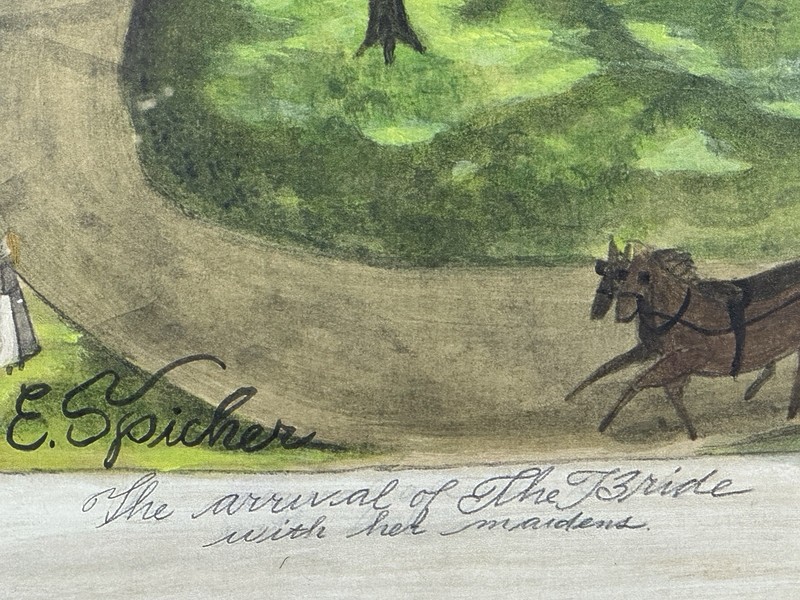 E. Spicher
The arrival of The Bride
with her maidens.